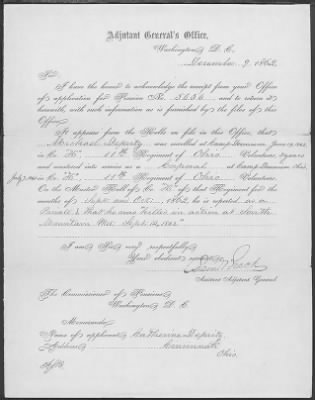 Adjutant General's Office,
Washington, D. C.
December 9, 1862
Sir,
I have the honor to acknowledge the receipt from your Office
of application for Pension No. 5636 and to return it
herewith, with such information as is furnished by the files of
this Office.
It appears from the Rolls on file in this Office, that
Michael Deprity was enrolled at Camp Dennison June 19, 1861
in Co. "K", 11th Regiment of Ohio Volunteers,
and mustered into service as a Corporal at Camp Dennison Ohio
in Co. "K", 11th Regiment of Ohio Volunteers.
On the Muster Roll of Co. "K" of that Regiment for the
months of Sept and Oct. 1862, he is reported as a
Private, "That he was killed in action at South
Mountain Md. Sept. 14, 1862"
I am Sir very respectfully
Your obedient servant
Assistant Adjutant General
The Commissioner of Pensions
Washington D. C.
Memoranda
Name of applicant, Catherine Deprity
Address Cincinnati
Ohio.